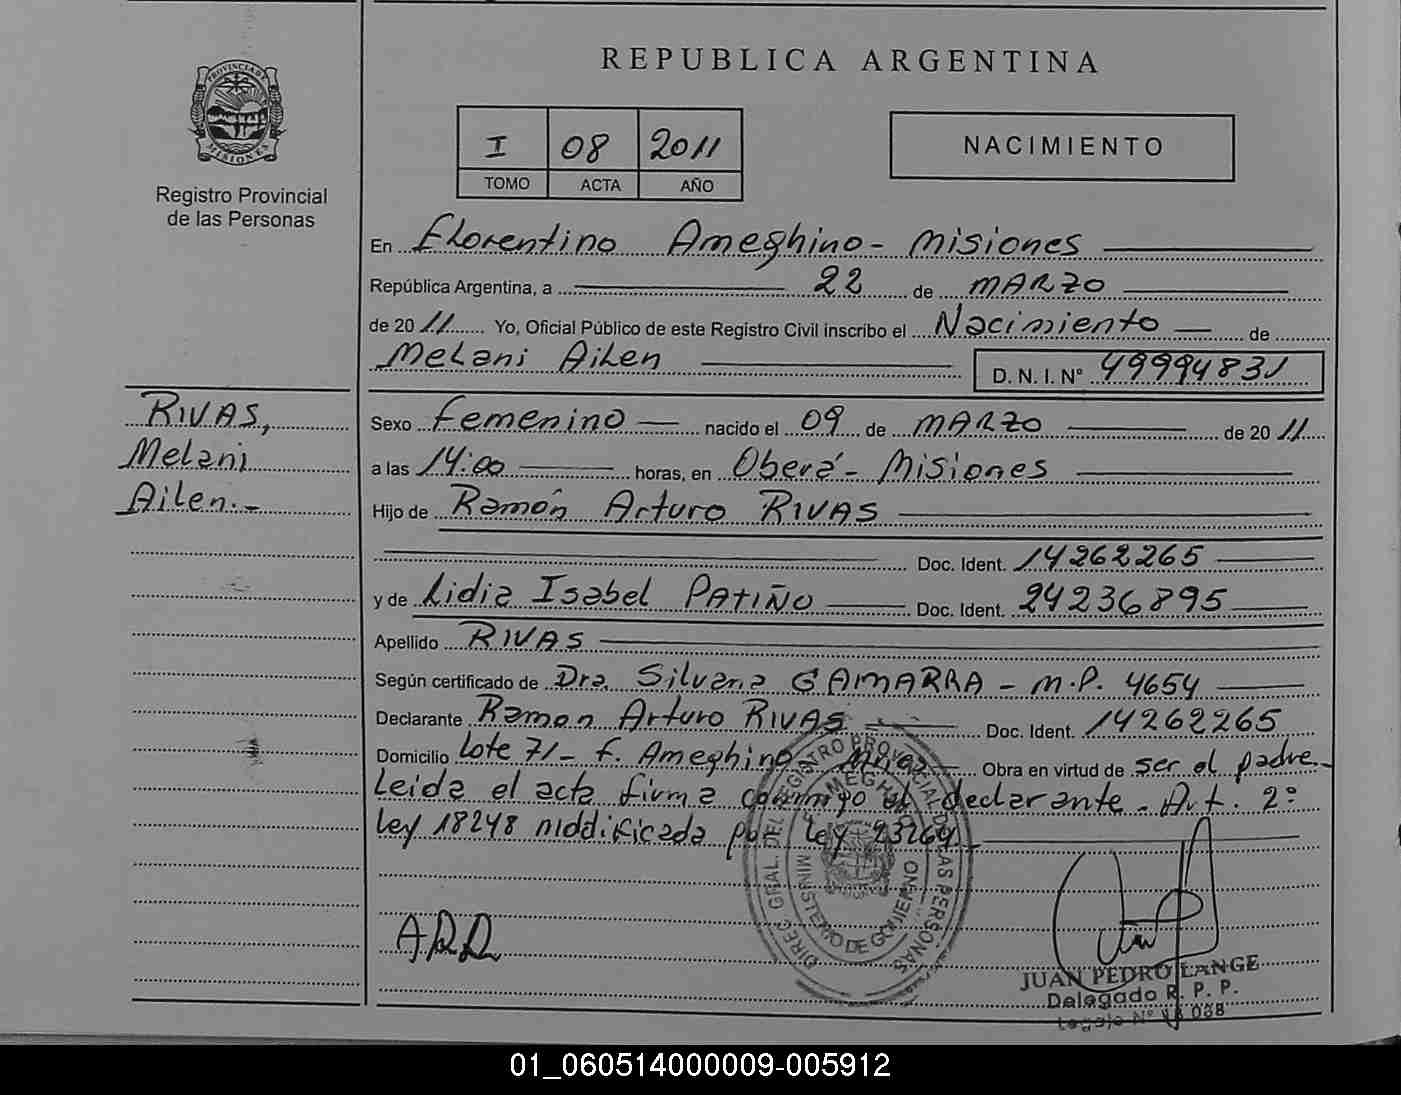 REPUBLICA ARGENTINA
PROVINCIA DE
MISIONES
Registro Provincial
de las Personas
I 08 2011
TOMO ACTA AÑO
NACIMIENTO
En Florentino Ameghino - Misiones
República Argentina, a 22 de MARZO
de 20 11 Yo, Oficial Público de este Registro Civil inscribo el Nacimiento de
Melani Ailen D. N. I. Nº 49994831
RIVAS,
Melani
Ailen.-
Sexo Femenino nacido el 09 de MARZO de 20 11
a las 14:00 horas, en Oberá - Misiones
Hijo de Ramón Arturo RIVAS
Doc. Ident. 14262265
y de Lidia Isabel PATIÑO Doc. Ident. 24236895
Apellido RIVAS
Según certificado de Dra. Silvana GAMARRA - M.P. 4654
Declarante Ramon Arturo RIVAS Doc. Ident. 14262265
Domicilio Lote 71 - F. Ameghino Mnes Obra en virtud de ser el padre -
Leida el acta firma conmigo el declarante - Art. 2º
Ley 18248 moddificada por Ley 23264
DIREC. GRAL. DEL REGISTRO PROVINCIAL DE LAS PERSONAS
MINISTERIO DE GOBIERNO
JUAN PEDRO LANGE
Delegado R. P. P.
Legajo Nº
01_060514000009-005912